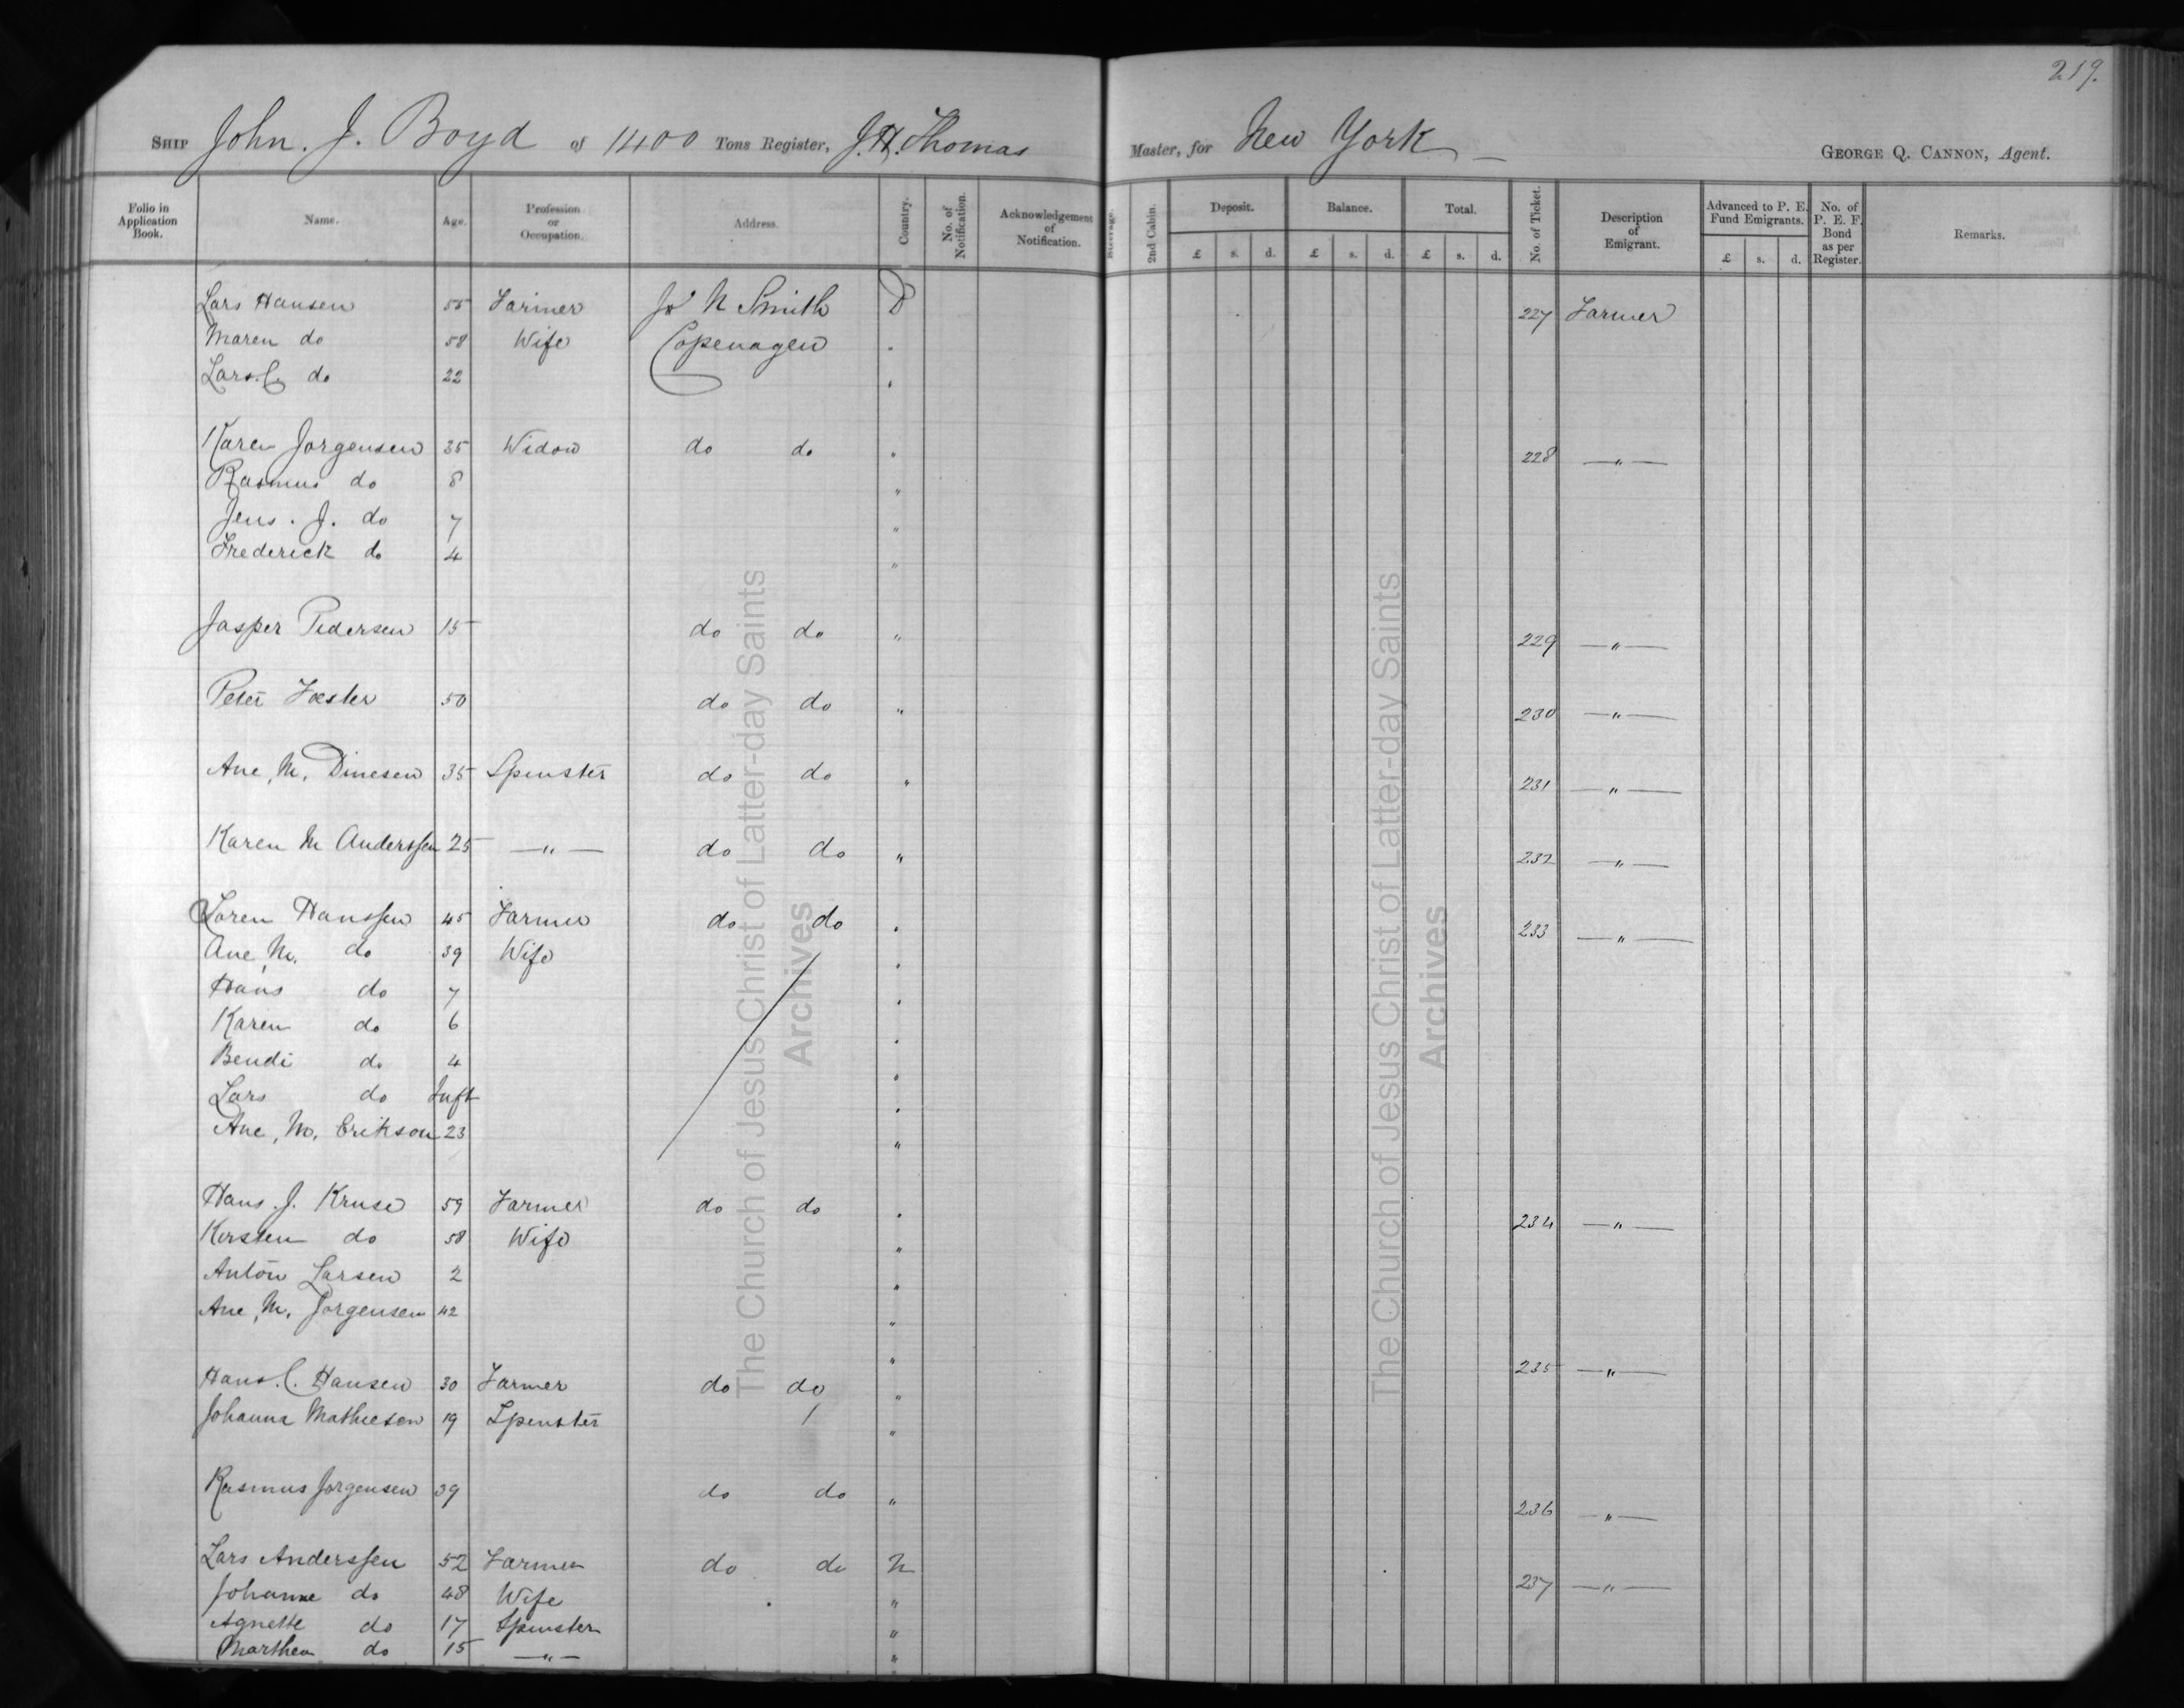 219.
SHIP John. J. Boyd of 1400 Tons Register, J.H. Thomas Master, for New York GEORGE Q. CANNON, Agent.
Folio in Application Book. Name. Age. Profession or Occupation. Address. Country. No. of Notification. Acknowledgement of Notification. Steerage. 2nd Cabin. Deposit. £ s. d. Balance. £ s. d. Total. £ s. d. No. of Ticket. Description of Emigrant. Advanced to P. E. Fund Emigrants. £ s. d. No. of P. E. F. Bond as per Register. Remarks.
Lars Hansen 55 Farmer N Smith D 227 Farmer
Maren do 58 Wife Copenagen "
Lars. C. do 22 "
Karen Jorgensen 35 Widow do do " 228 — " —
Rasmus do 8 "
Jens. J. do 7 "
Frederick do 4 "
Jasper Pedersen 15 do do " 229 — " —
Peter 50 do do " 230 — " —
Ane, M, Dinesen 35 Spinster do do " 231 — " —
Karen M Anderssen 25 — " — do do " 232 — " —
Soren Hanssen 45 Farmer do do " 233 — " —
Ane, M. do 39 Wife "
Hans do 7 "
Karen do 6 "
Bendi do 4 "
Lars do Inft "
Ane, M. Erikson 23 "
Hans. J. Kruse 59 Farmer do do " 234 — " —
Kersten do 58 Wife "
Anton Larsen 2 "
Ane, M. Jorgensen 42 "
Hans. C. Hansen 30 Farmer do do " 235 — " —
Johanna Mathiesen 19 Spinster "
Rasmus Jorgensen 39 do do " 236 — " —
Lars Anderssen 52 Farmer do do N 237 — " —
Johanne do 48 Wife "
Agnette do 17 Spinster "
Marthea do 15 — " — "
The Church of Jesus Christ of Latter-day Saints
Archives
The Church of Jesus Christ of Latter-day Saints
Archives